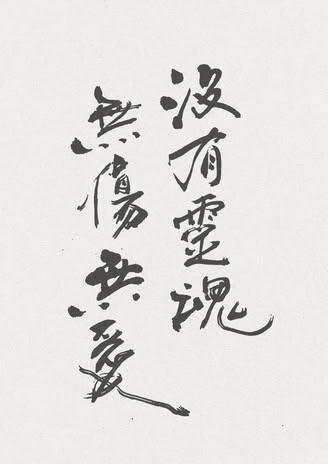 沒有靈魂
無傷無愛